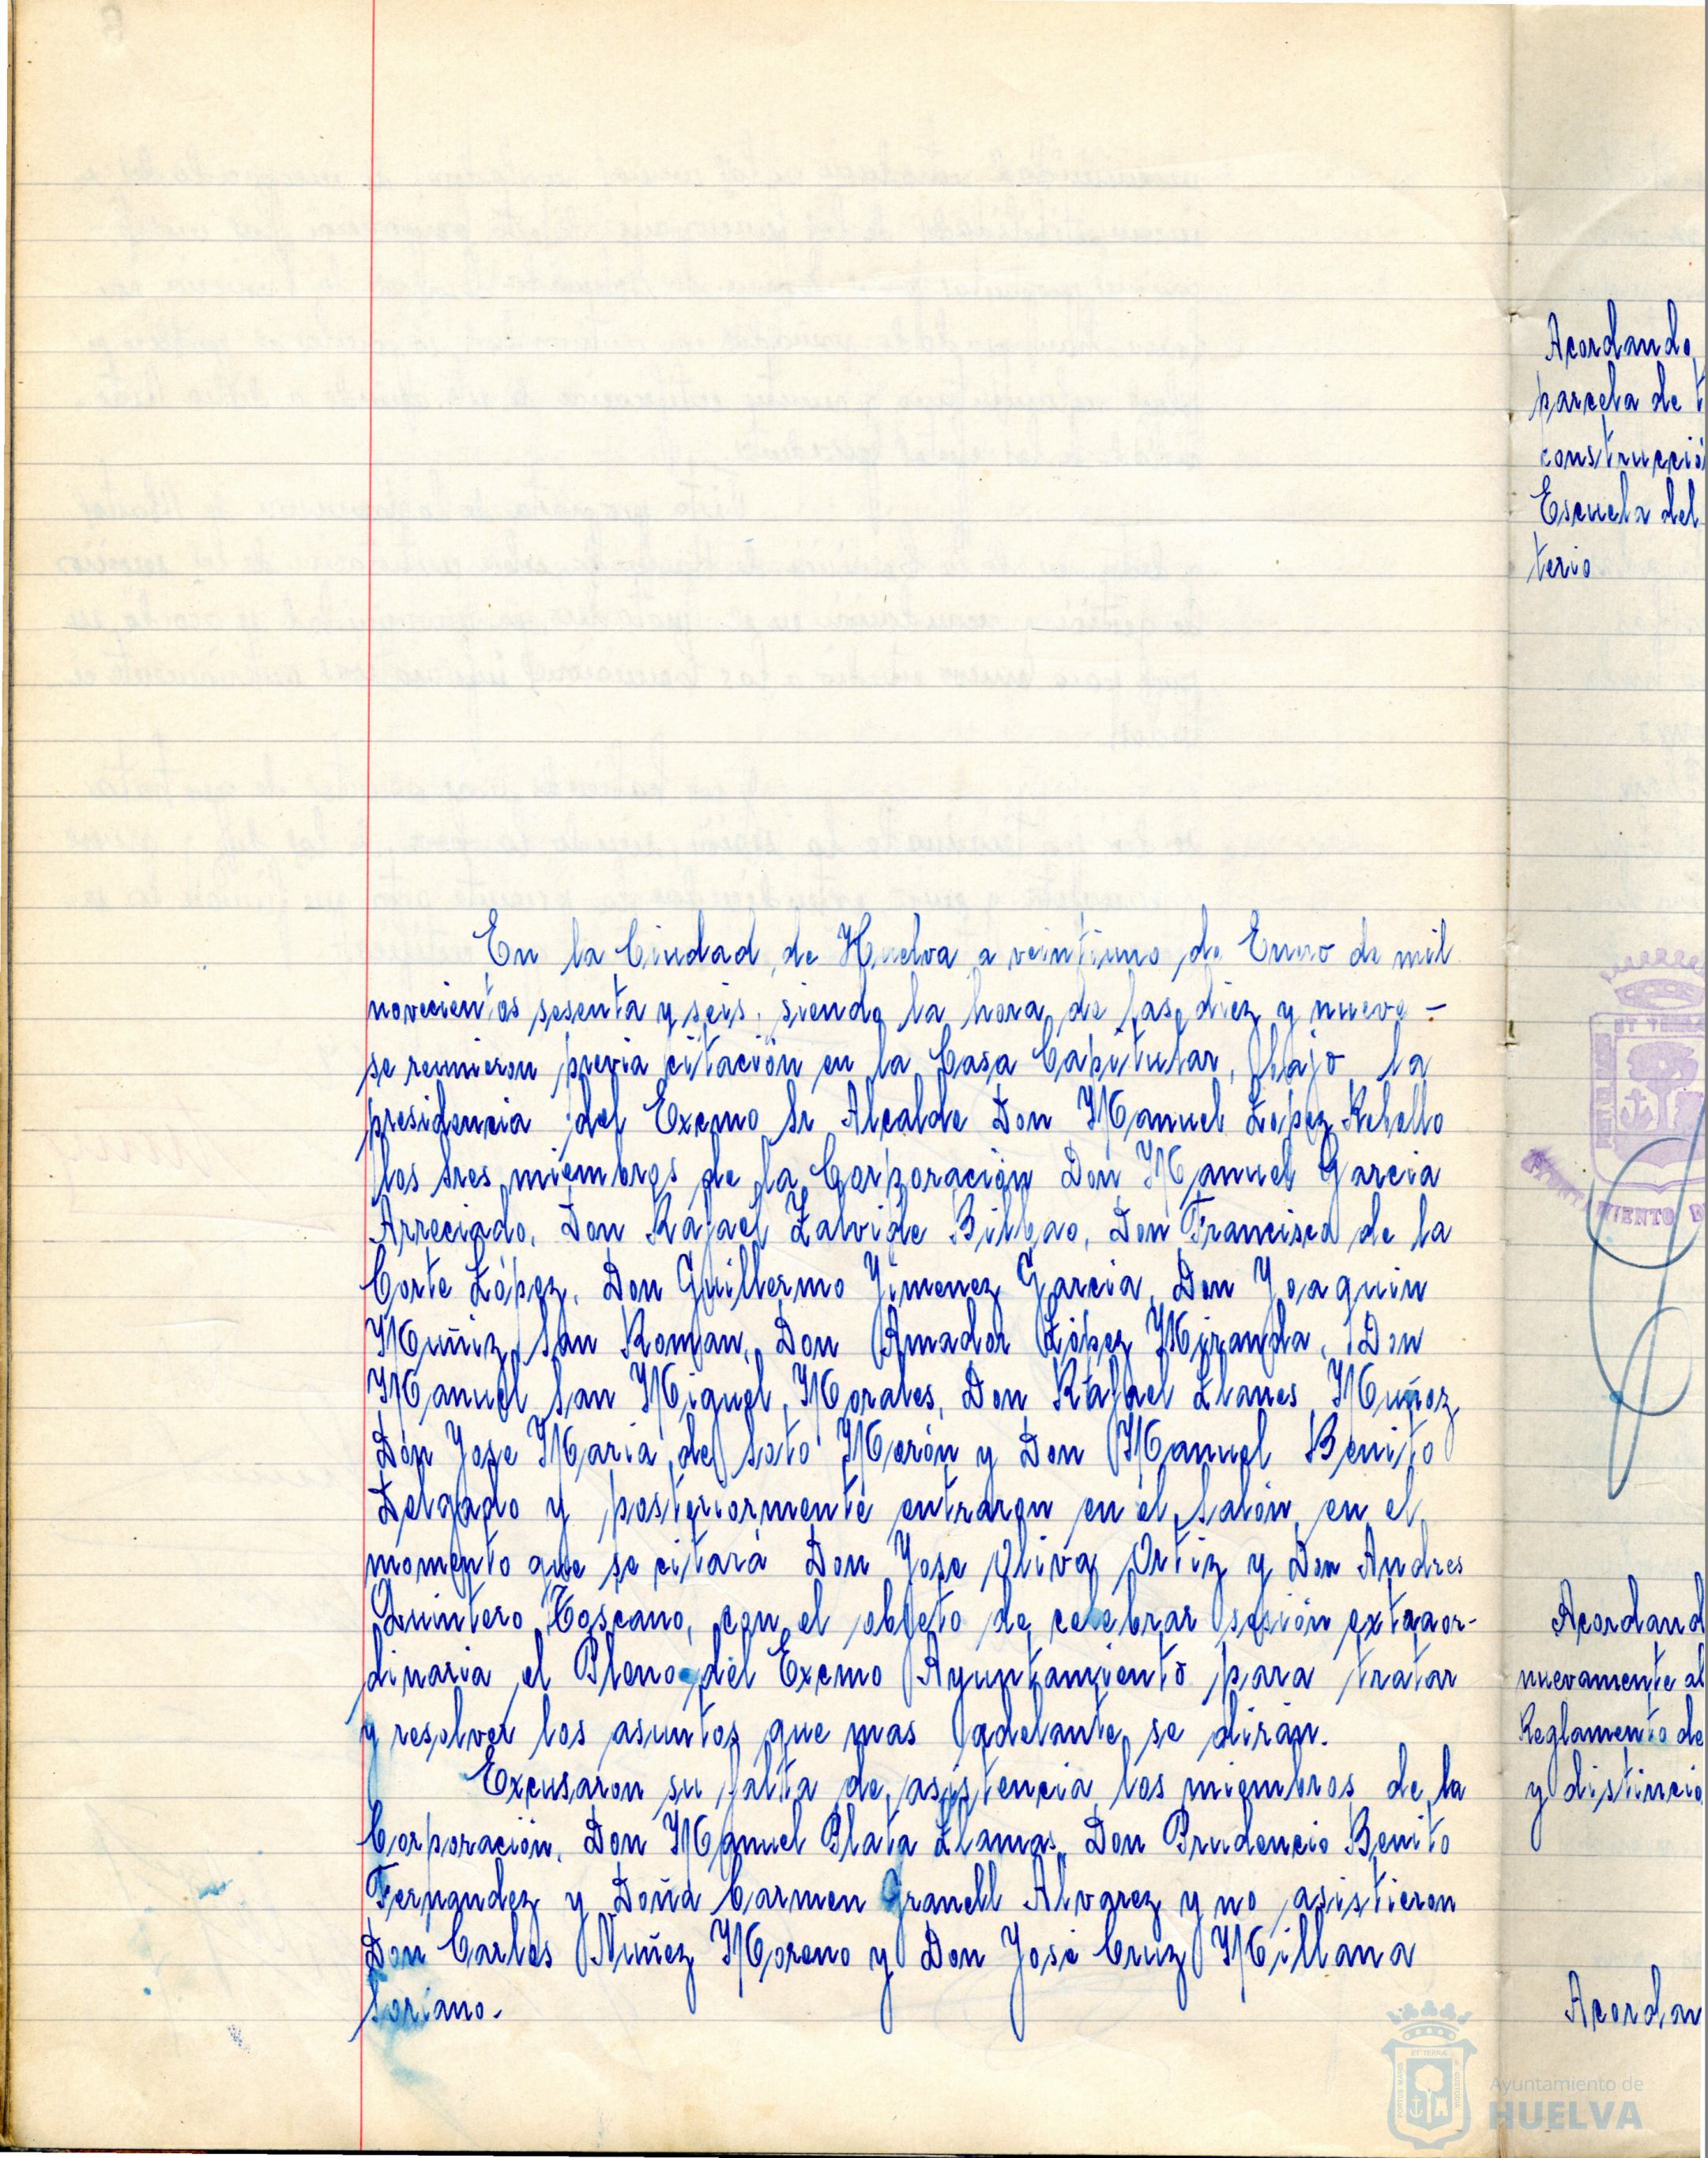 En la Ciudad de Huelva a veintiuno de Enero de mil
novecientos sesenta y seis, siendo la hora de las diez y nueve -
se reunieron previa citación en la Casa Capitular, bajo la
presidencia del Excmo Sr Alcalde Don Manuel López Rebollo
los sres miembros de la Corporación Don Manuel Garcia
Arreciado, Don Rafael Zalvide Bilbao, Don Francisco de la
Corte López, Don Guillermo Jimenez Garcia, Don Joaquin
Muñiz San Roman, Don Amador López Miranda, Don
Manuel San Miguel Morales, Don Rafael Llanes Muñoz,
Don Jose Maria del Soto Morón y Don Manuel Benito
Delgado y posteriormente entraron en el salón, en el
momento que se citará Don Jose Oliva Ortiz y Don Andres
Quintero Toscano, con el objeto de celebrar sesión extraor-
dinaria el Pleno del Excmo Ayuntamiento para tratar
y resolver los asuntos que mas adelante se dirán.
Excusaron su falta de asistencia los miembros de la
Corporación, Don Manuel Plata Llamas, Don Prudencio Benito
Fernandez y Doña Carmen Granell Alvarez y no asistieron
Don Carlos Nuñez Moreno y Don José Cruz Millana
Soriano.
Acordando
parcela de t
construcció
Escuela del
terio
Acordand
nuevamente al
Reglamento de
y distincio
Acordan
Ayuntamiento de
HUELVA